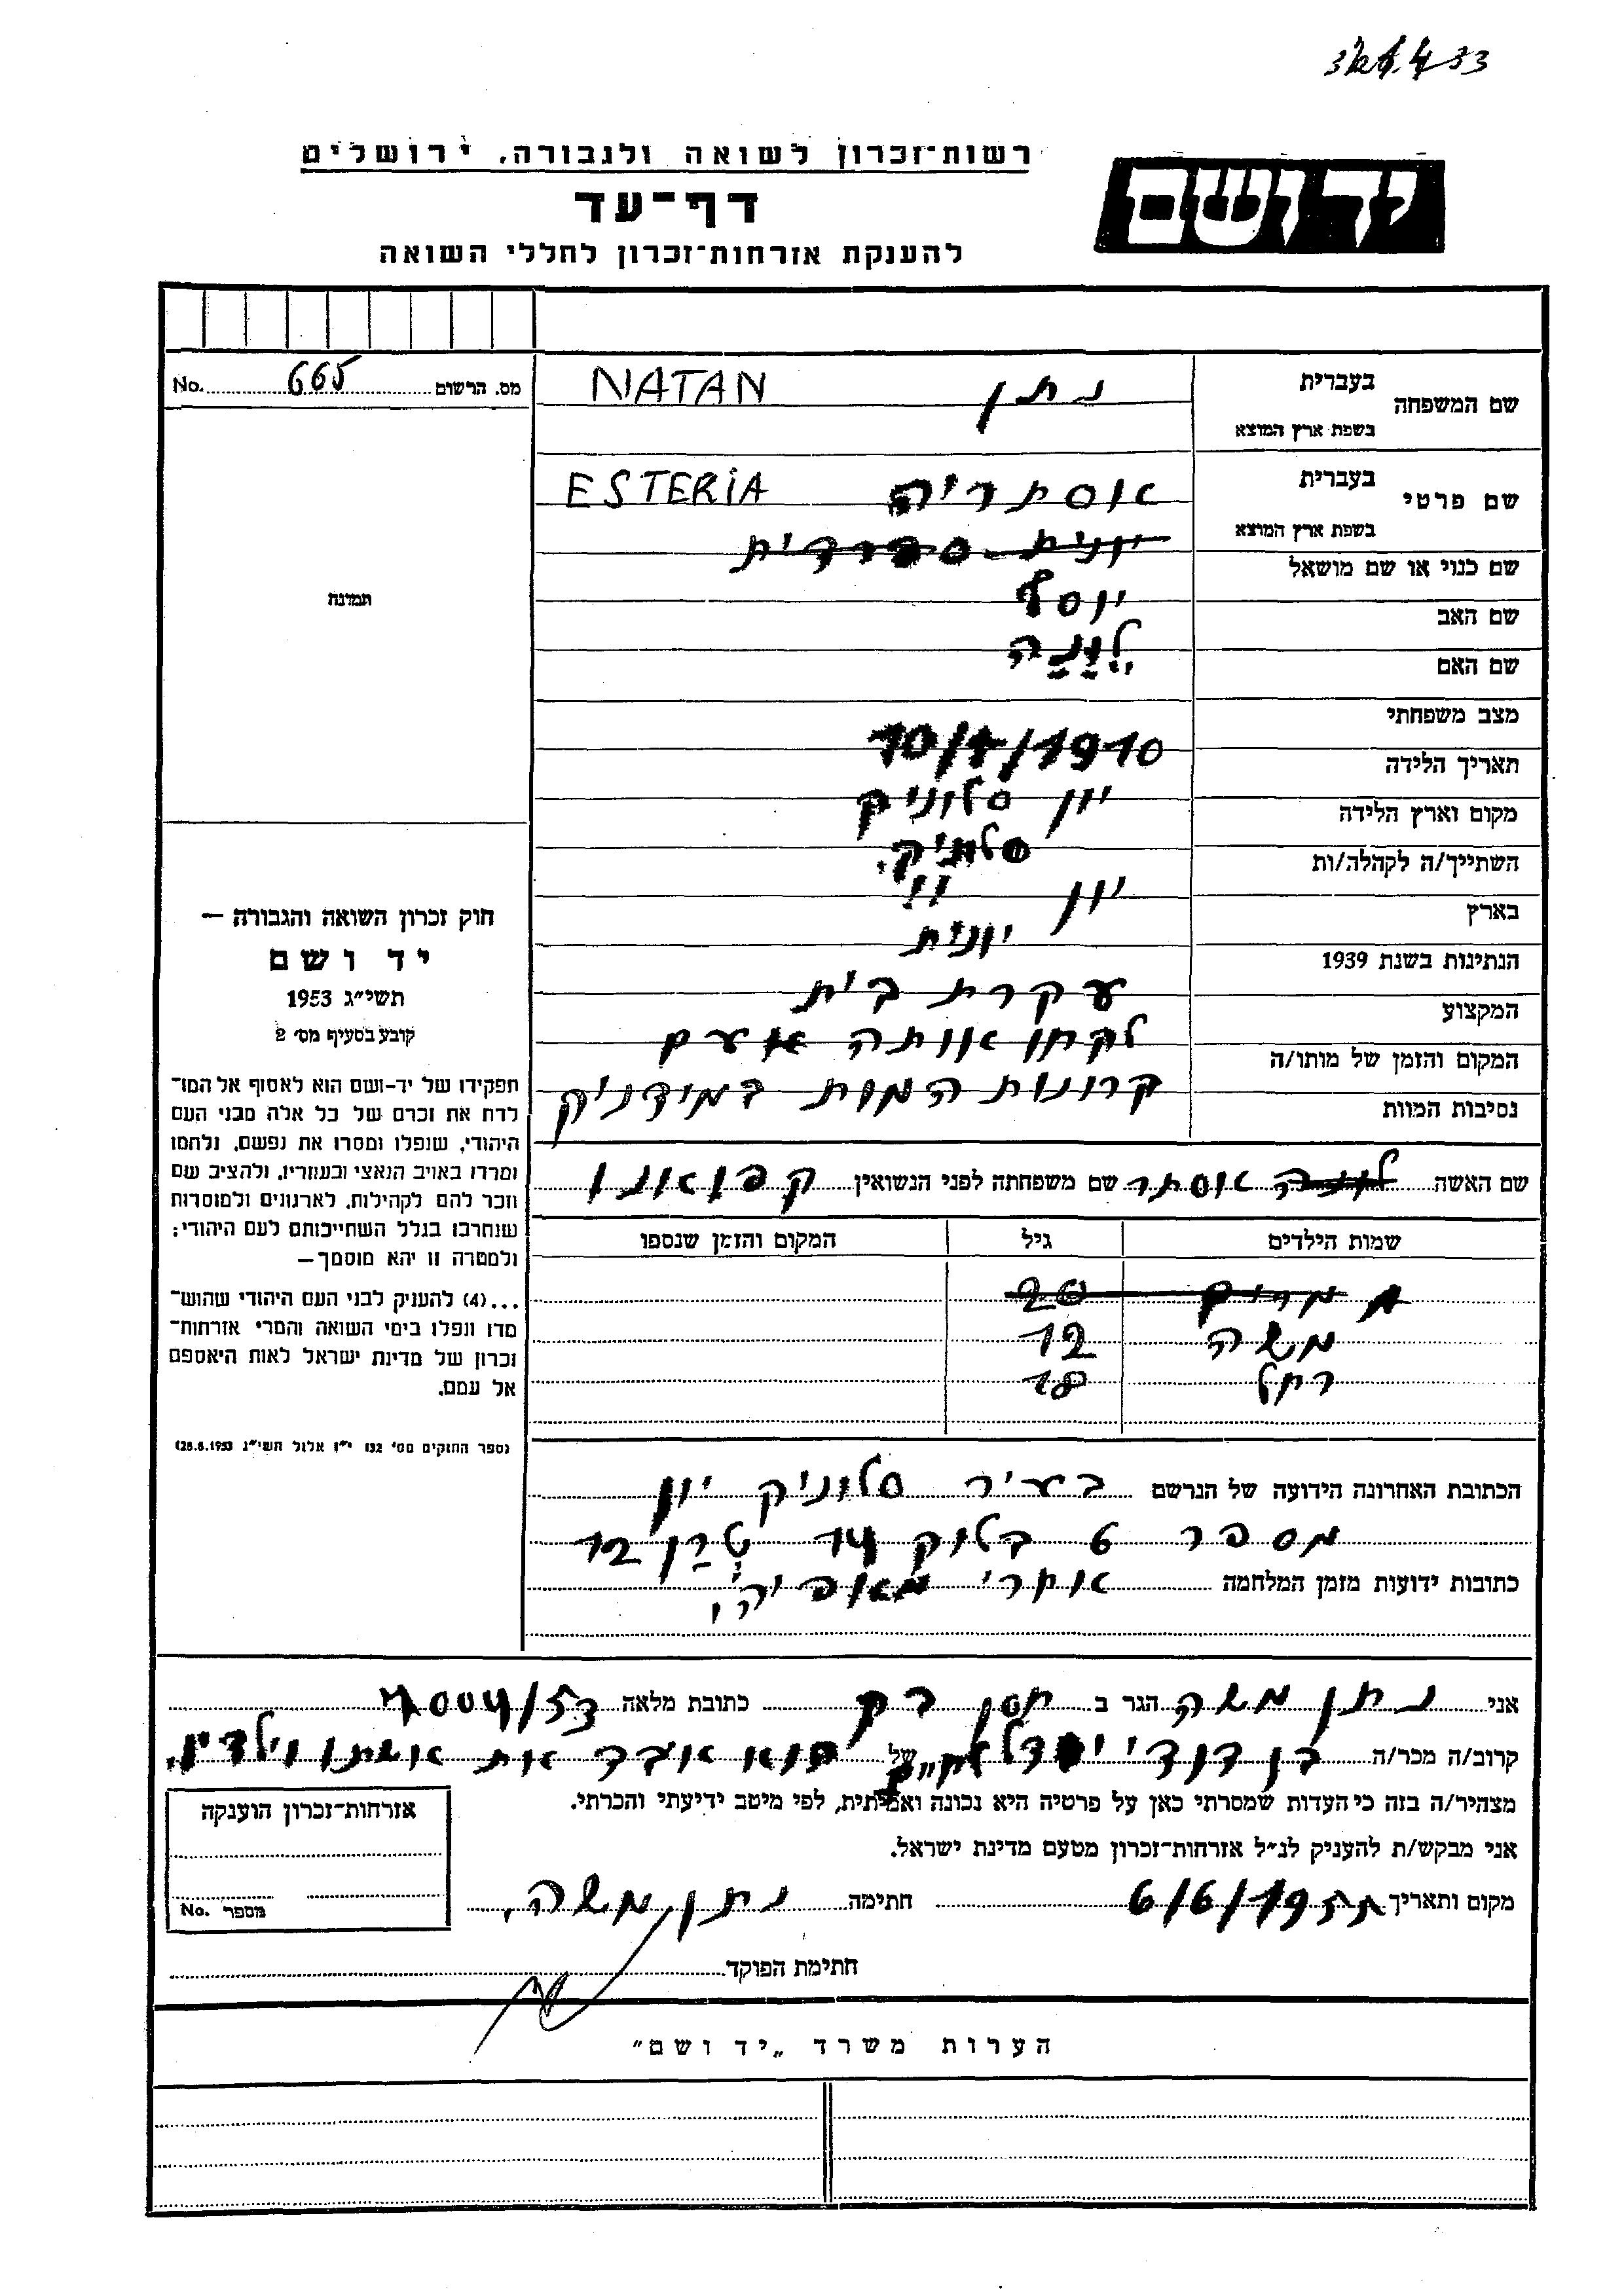 רשות־זכרון לשואה ולגבורה, ירושלים
יד ושם
דף־עד
להענקת אזרחות־זכרון לחללי השואה
מס. הרשום 665 No.
שם המשפחה בעברית נתן NATAN
בשפת ארץ המוצא
שם פרטי בעברית אוסתריה ESTERIA
בשפת ארץ המוצא
שם כנוי או שם מושאל יונית ספרדית
שם האב יוסף
שם האם
מצב משפחתי
תאריך הלידה 10/1/1910
מקום וארץ הלידה יון סלוניק
השתייך/ה לקהלה/ות סלוניק.
בארץ יון
הנתינות בשנת 1939 יונית
המקצוע עקרת בית
המקום והזמן של מותו/ה לקחו אותה עם
נסיבות המוות קרונות המות במידניק
שם האשה אוסתר שם משפחתה לפני הנשואין קפואנו
שמות הילדים גיל המקום והזמן שנספו
מרים 20
משה 12
רחל 18
הכתובת האחרונה הידועה של הנרשם בעיר סלוניק יון
מספר 6 בלוק 14 טרן 12
כתובות ידועות מזמן המלחמה אוחרי
תמונה
חוק זכרון השואה והגבורה —
יד ושם
תשי״ג 1953
קובע בסעיף מס׳ 2
תפקידו של יד-ושם הוא לאסוף אל המו־
לדת את זכרם של כל אלה מבני העם
היהודי, שנפלו ומסרו את נפשם, נלחמו
ומרדו באויב הנאצי ובעוזריו, ולהציב שם
וזכר להם לקהילות, לארגונים ולמוסדות
שנחרבו בגלל השתייכותם לעם היהודי;
ולמטרה זו יהא מוסמך—
...(4) להעניק לבני העם היהודי שהוש־
מדו ונפלו בימי השואה והמרי אזרחות־
זכרון של מדינת ישראל לאות היאספם
אל עמם.
(ספר החוקים מס׳ 132 י״ז אלול תשי״ג 28.8.1953)
אני נתן משה הגר ב כתובת מלאה
קרוב/ה מכר/ה בן דודי של הוא אבד את אשתו וילדיו.
מצהיר/ה בזה כי העדות שמסרתי כאן על פרטיה היא נכונה ואמיתית, לפי מיטב ידיעתי והכרתי.
אני מבקש/ת להעניק לנ״ל אזרחות־זכרון מטעם מדינת ישראל.
מקום ותאריך 6/6/1955 חתימה נתן משה.
אזרחות־זכרון הוענקה
מספר No.
חתימת הפוקד
הערות משרד „יד ושם״